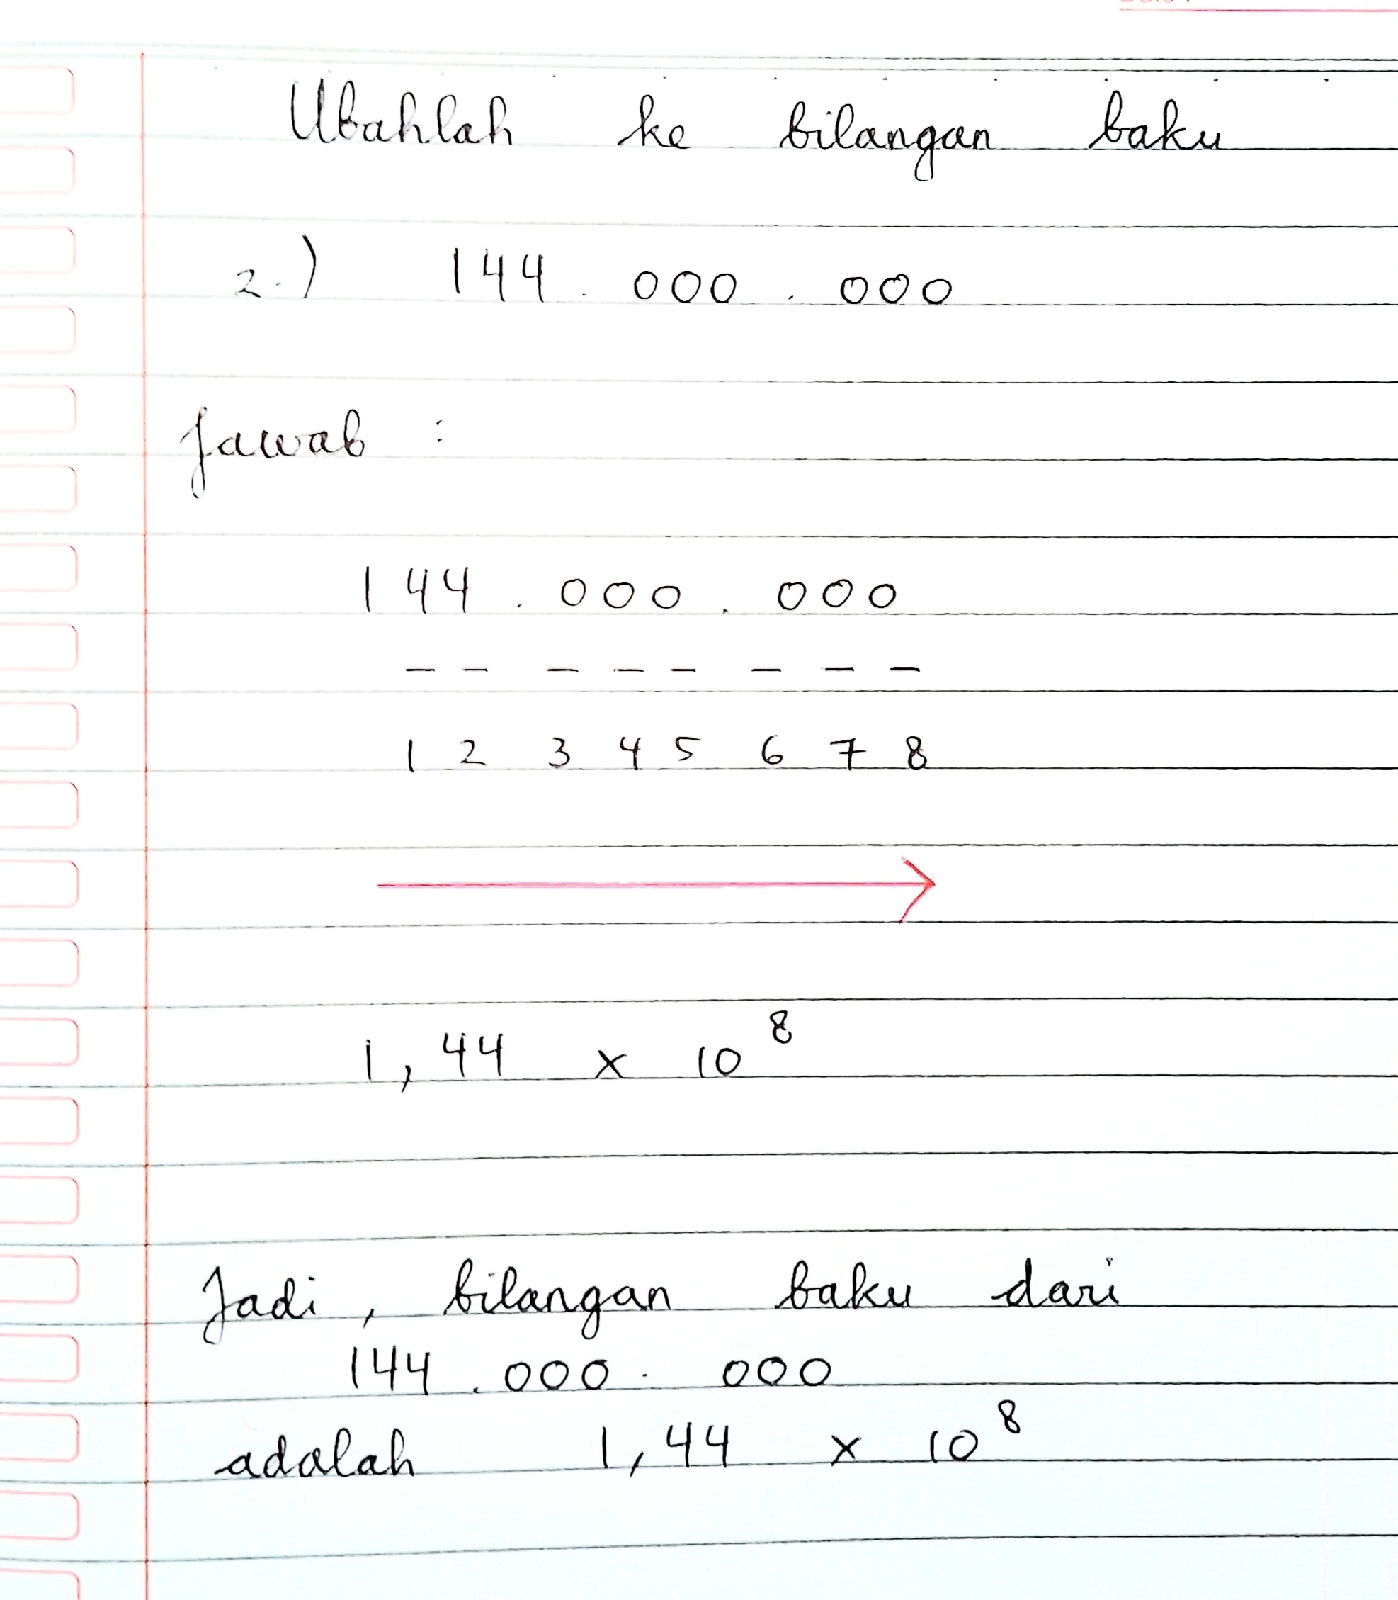 Ubahlah ke bilangan baku
2.) 144.000.000
Jawab :
144.000.000
_ _ _ _ _ _ _ _
1 2 3 4 5 6 7 8
1,44 x 10⁸
Jadi, bilangan baku dari
144.000.000
adalah 1,44 x 10⁸